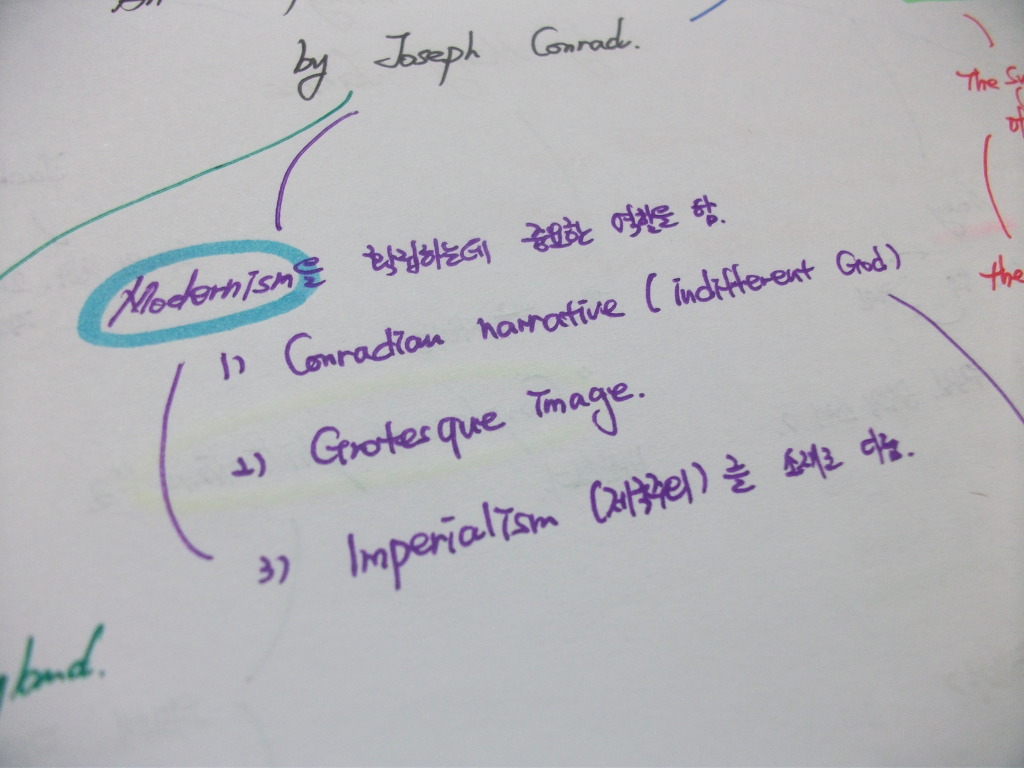 by Joseph Conrad.
Modernism을 확립하는데 중요한 역할을 함.
1) Conradian narrative (indifferent God)
2) Grotesque image.
3) Imperialism (제국주의)를 소재로 다룸.
The
the